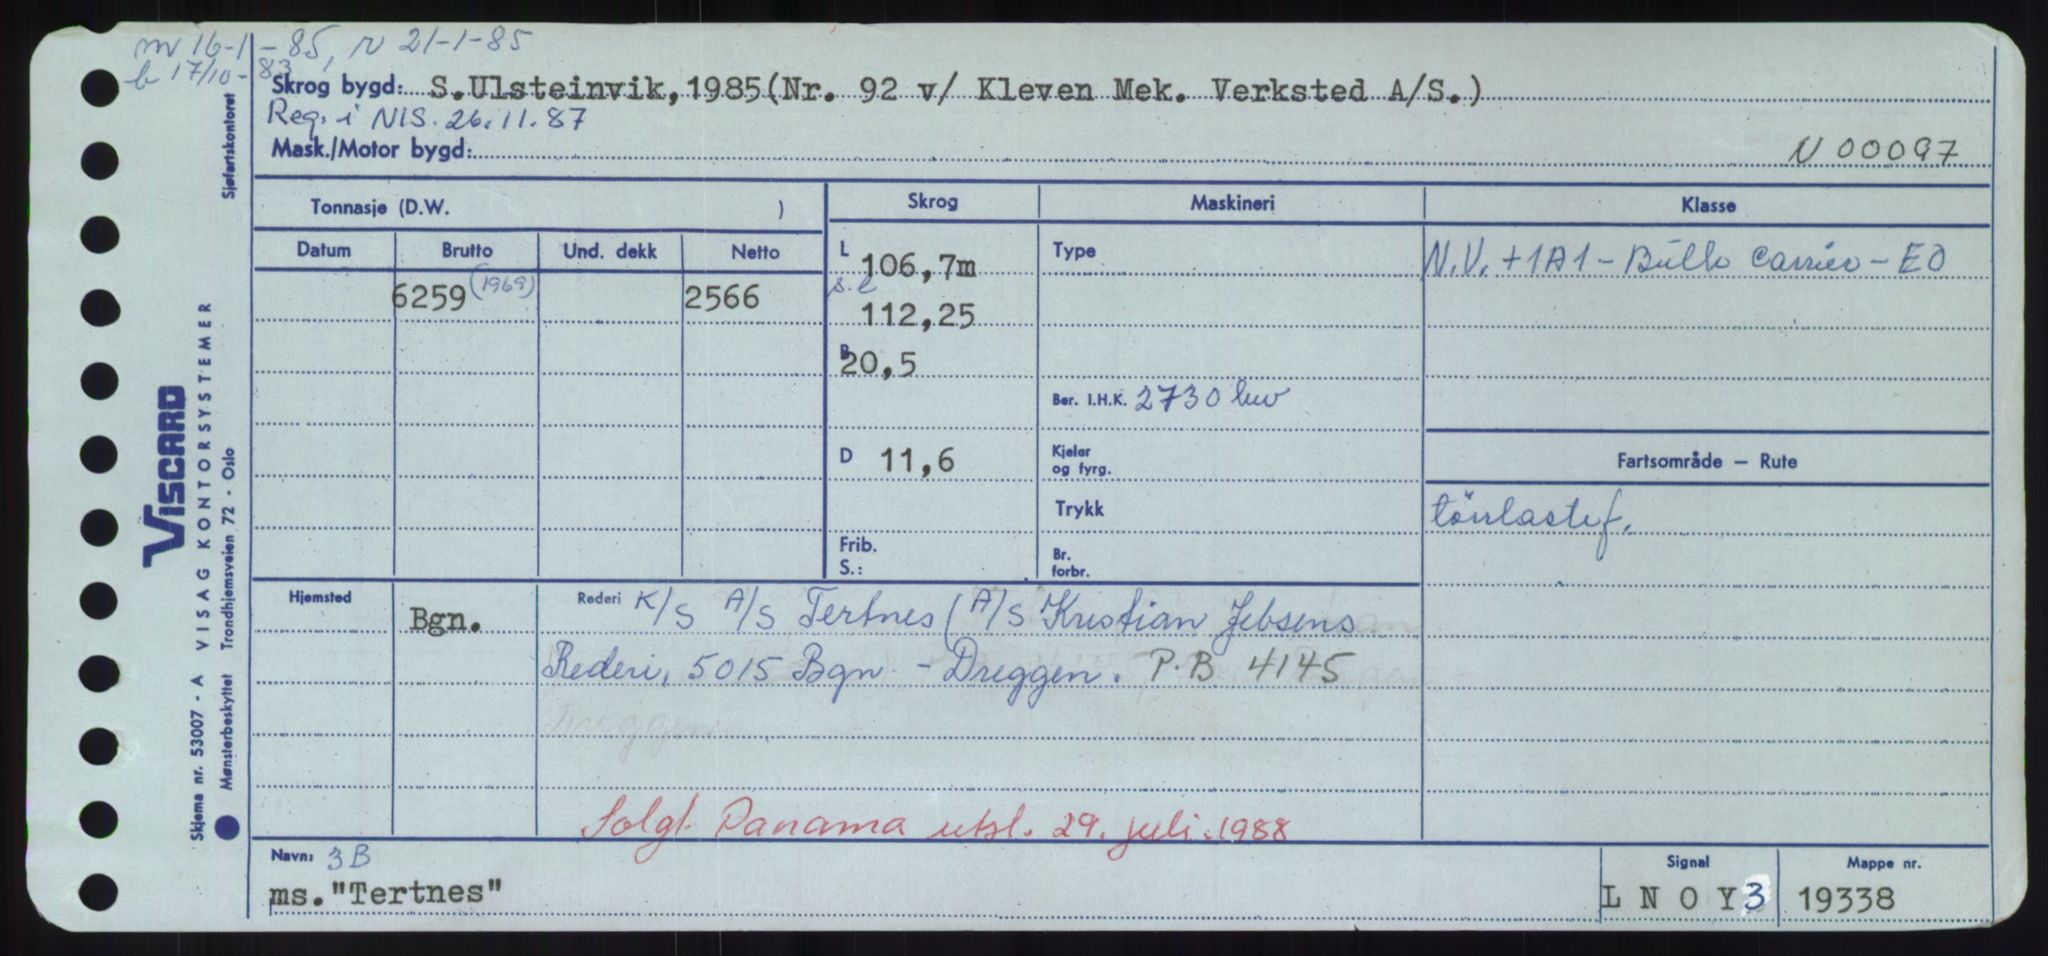 m 16-1-85, r 21-1-85
b 17/10-83
Skrog bygd: S.Ulsteinvik,1985(Nr. 92 v/ Kleven Mek. Verksted A/S.)
Reg. i NIS. 26.11.87
Mask./Motor bygd:
N 00097
Tonnasje (D.W. )
Skrog
Maskineri
Klasse
Datum Brutto Und. dekk Netto
L 106,7m
Type
N.V. +1A1 - Bulk carrier - EO
6259 (1969) 2566
s.l
112,25
B 20,5
Ber. I.H.K. 2730 kw
D 11,6
Kjeler og fyrg.
Fartsområde – Rute
Trykk
törrlastef.
Frib.
S.:
Br. forbr.
Hjemsted Bgn.
Rederi K/S A/S Tertnes (A/S Kristian Jebsens
Rederi, 5015 Bgn - Dreggen. P.B 4145
Solgt Panama utsl. 29. juli. 1988
Navn: 3B
ms."Tertnes"
Signal
L N O Y 3
Mappe nr.
19338
Sjøfartskontoret
VISCARD
VISAG KONTORSYSTEMER
Trondhjemsveien 72 - Oslo
Skjema nr. 53007 - A
Mønsterbeskyttet